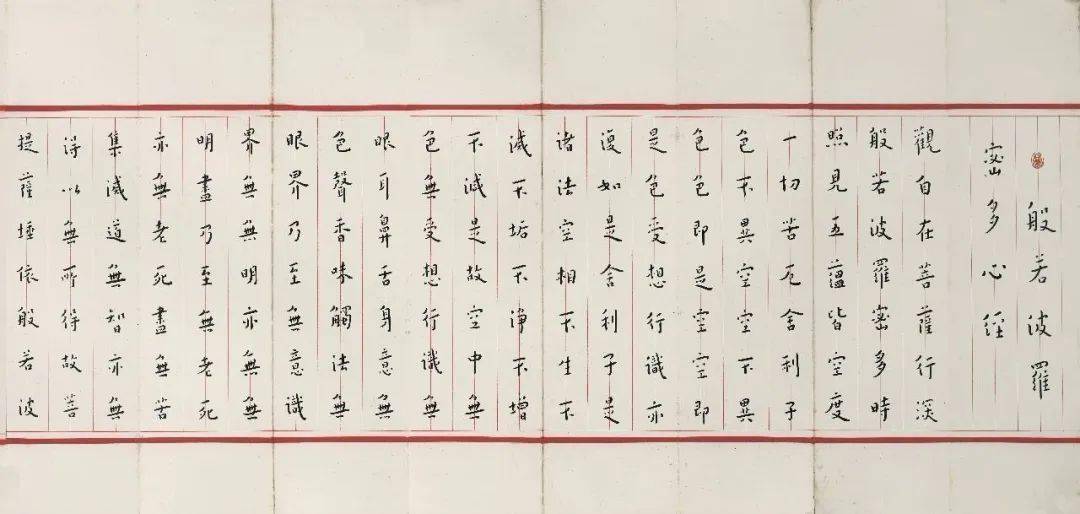 般若波羅
蜜多心經
觀自在菩薩行深
般若波羅蜜多時
照見五蘊皆空度
一切苦厄舍利子
色不異空空不異
色色即是空空即
是色受想行識亦
復如是舍利子是
諸法空相不生不
滅不垢不淨不增
不減是故空中無
色無受想行識無
眼耳鼻舌身意無
色聲香味觸法無
眼界乃至無意識
界無無明亦無無
明盡乃至無老死
亦無老死盡無苦
集滅道無智亦無
得以無所得故菩
提薩埵依般若波